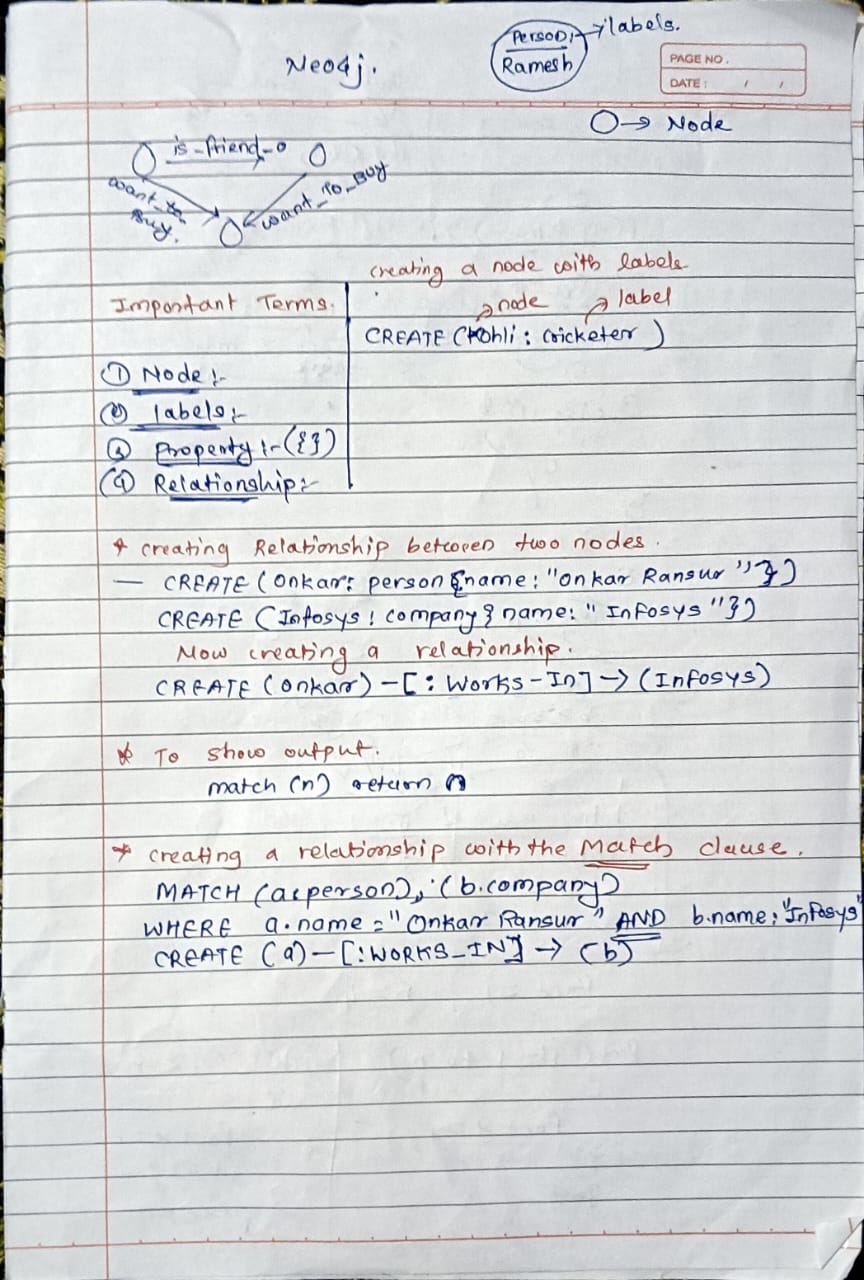 Person, → labels.
Neo4j.
Ramesh
PAGE NO.
DATE: / /
O → Node
is-friend-o
want_to Buy.
want_To_Buy
creating a node with labels
Important Terms.
node label
CREATE (Kohli : cricketer )
① Node :-
② labels :-
③ Property :- ({})
④ Relationship :-
* creating Relationship between two nodes.
— CREATE ( Onkar: person {name: "Onkar Ransur "})
CREATE (Infosys : company { name: " Infosys "})
Now creating a relationship.
CREATE (onkar) -[: Works-In] → (Infosys)
* To show output.
match (n) return n
* creating a relationship with the Match clause.
MATCH (a:person), (b.company)
WHERE a.name = "Onkar Ransur" AND b.name: "Infosys"
CREATE (a) - [:WORKS_IN] → (b)